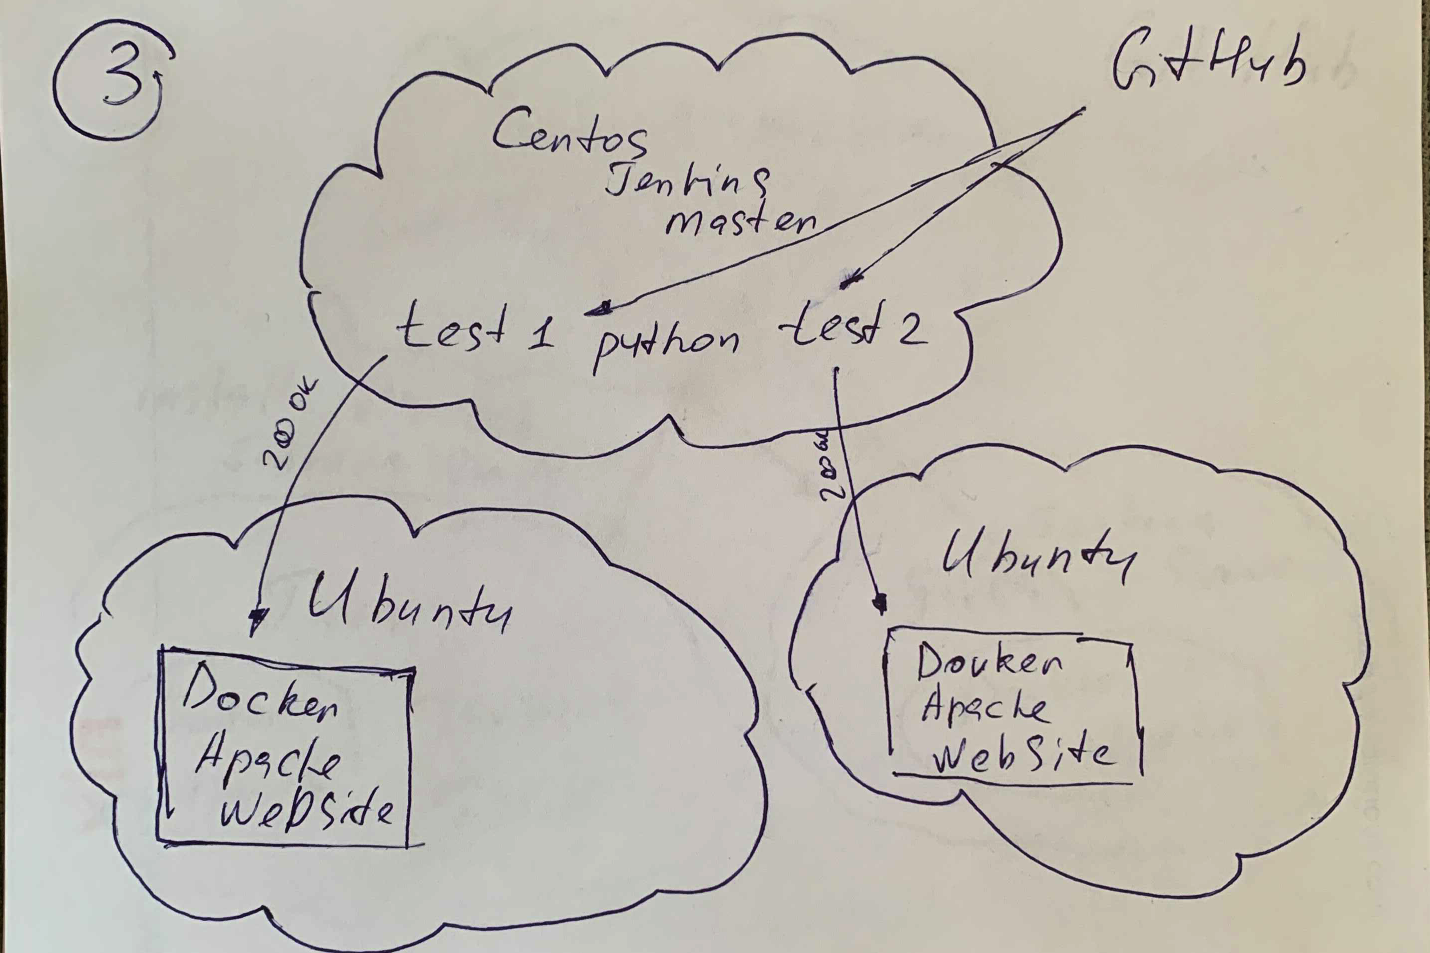 3
GitHub
Centos
Jenkins
master
test 1
python
test 2
200 OK
200 OK
Ubuntu
Docker
Apache
WebSite
Ubuntu
Docker
Apache
WebSite